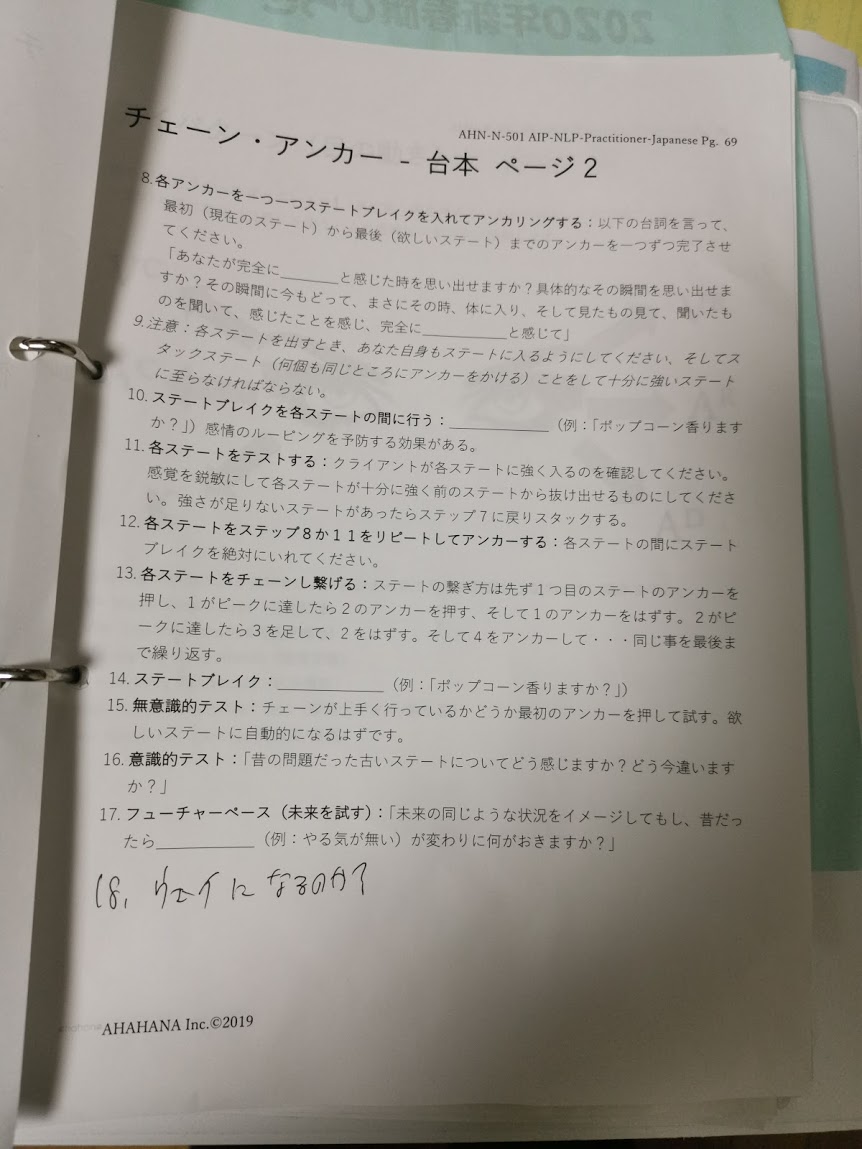 AHN-N-501 AIP-NLP-Practitioner-Japanese Pg. 69
チェーン・アンカー - 台本 ページ2
8.各アンカーを一つ一つステートブレイクを入れてアンカリングする：以下の台詞を言って、
最初（現在のステート）から最後（欲しいステート）までのアンカーを一つずつ完了させ
てください。
「あなたが完全に________と感じた時を思い出せますか？具体的なその瞬間を思い出せま
すか？その瞬間に今もどって、まさにその時、体に入り、そして見たもの見て、聞いたも
のを聞いて、感じたことを感じ、完全に___________と感じて」
9.注意：各ステートを出すとき、あなた自身もステートに入るようにしてください、そしてス
タックステート（何個も同じところにアンカーをかける）ことをして十分に強いステート
に至らなければならない。
10. ステートブレイクを各ステートの間に行う：_____________（例：「ポップコーン香ります
か？」）感情のルーピングを予防する効果がある。
11. 各ステートをテストする：クライアントが各ステートに強く入るのを確認してください。
感覚を鋭敏にして各ステートが十分に強く前のステートから抜け出せるものにしてくださ
い。強さが足りないステートがあったらステップ７に戻りスタックする。
12. 各ステートをステップ８か１１をリピートしてアンカーする：各ステートの間にステート
ブレイクを絶対にいれてください。
13. 各ステートをチェーンし繋げる：ステートの繋ぎ方は先ず１つ目のステートのアンカーを
押し、１がピークに達したら２のアンカーを押す、そして１のアンカーをはずす。２がピ
ークに達したら３を足して、２をはずす。そして４をアンカーして・・・同じ事を最後ま
で繰り返す。
14. ステートブレイク：______________（例：「ポップコーン香りますか？」）
15. 無意識的テスト：チェーンが上手く行っているかどうか最初のアンカーを押して試す。欲
しいステートに自動的になるはずです。
16. 意識的テスト：「昔の問題だった古いステートについてどう感じますか？どう今違います
か？」
17. フューチャーペース（未来を試す）：「未来の同じような状況をイメージしてもし、昔だっ
たら_____________（例：やる気が無い）が変わりに何がおきますか？」
18, ウェイに なるのか？
AHAHANA Inc.©2019